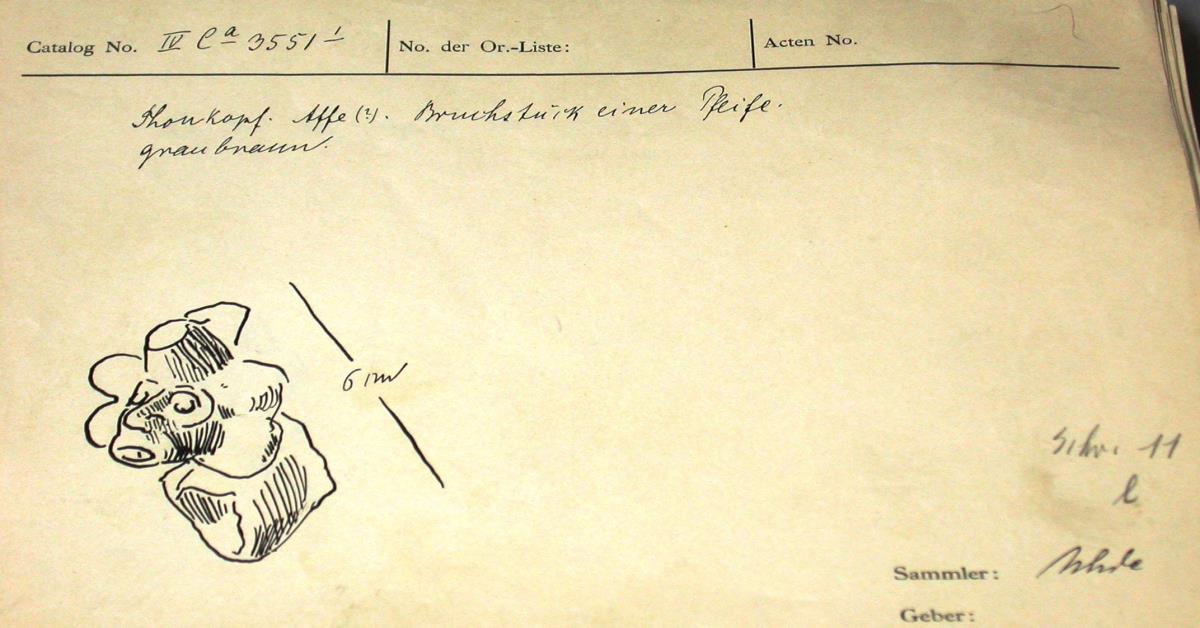 Catalog No. IV Ca 3551 1 No. der Or.-Liste: Acten No.
Thonkopf. Affe (?). Bruchstück einer Pfeife.
graubraun.
6 cm
Schr. 11
l
Sammler: Uhde
Geber: